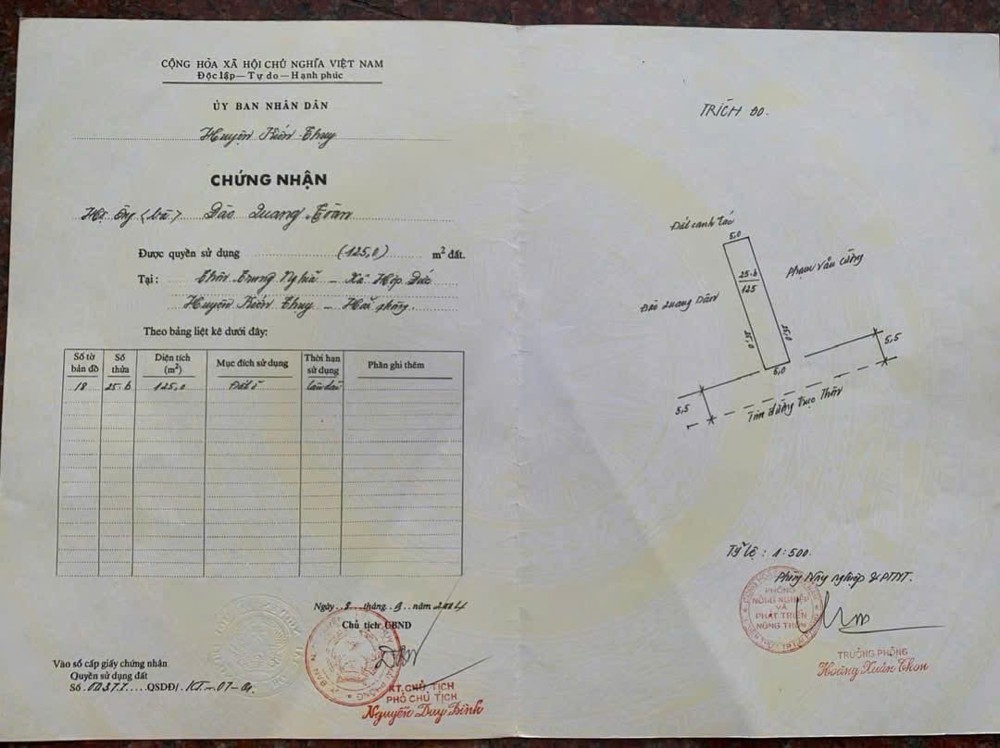 CỘNG HÒA XÃ HỘI CHỦ NGHĨA VIỆT NAM
Độc lập — Tự do — Hạnh phúc
ỦY BAN NHÂN DÂN
Huyện Kiến Thụy
CHỨNG NHẬN
Hộ Ông (bà) Đào Quang
Được quyền sử dụng (125,0) m² đất.
Tại: Thôn Trung Nghĩa - Xã Hợp Đức
Huyện Kiến Thụy - Hải phòng
Theo bảng liệt kê dưới đây:
Số tờ bản đồ
Số thửa
Diện tích (m²)
Mục đích sử dụng
Thời hạn sử dụng
Phần ghi thêm
18 25-b 125,0 Đất ở Lâu dài
Ngày tháng năm
Chủ tịch UBND
KT.CHỦ TỊCH
PHÓ CHỦ TỊCH
Nguyễn Duy Bình
Vào sổ cấp giấy chứng nhận
Quyền sử dụng đất
Số QSDĐ/
TRÍCH ĐO.
Đất canh tác
5,0
25-b
125
Phạm Văn
Đào Quang
25,0
25,0
5,0
5,5
5,5
Tim đường trục thôn
Tỷ lệ: 1:500.
Phòng Nông nghiệp & PTNT.
PHÒNG
NÔNG NGHIỆP
VÀ
PHÁT TRIỂN
NÔNG THÔN
TRƯỞNG PHÒNG
Hoàng Xuân